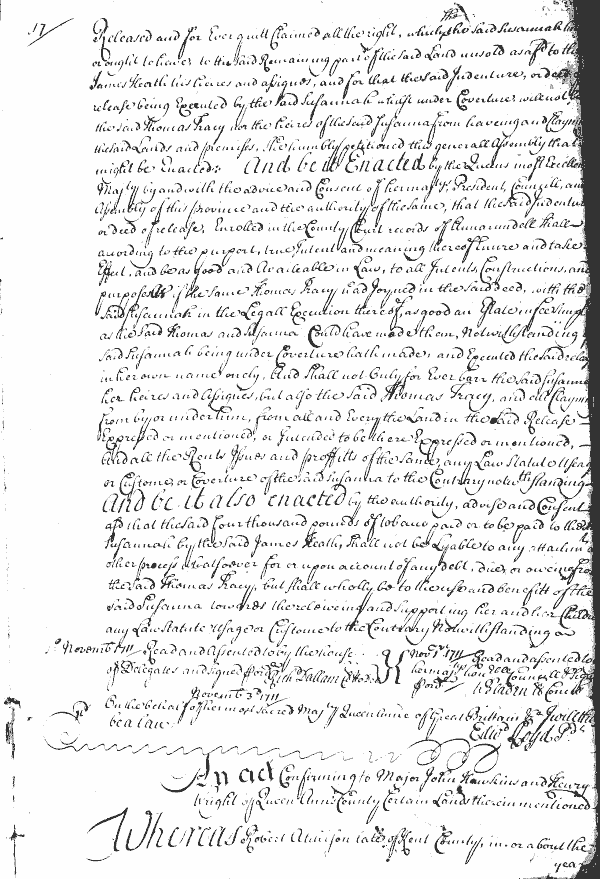 17
Released and for Ever quitt Claimed all the right, which the
the said Susannah
or ought to have to the said Remaining part of the said Land unsold as afsd to the
James Heath his heires and assignes, and for that the said Indenture, or deed of
release being Executed by the said Susannah whilst under Coverture will not
the said Thomas Tracy nor the heires of the said Susanna from haveing and Clayming
the said Lands and premisses, She humbly petitioned this generall Assembly that
might be Enacted: And be it Enacted by the Queens most Excellent
Majty by and with the advice and Consent of her majtys President, Councill, and
Assembly of this province and the authority of the same, that the said Indenture
or deed of release, Enrolled in the County Court records of Annarundell shall
according to the purport, true Intent and meaning thereof Inure and take
Effect, and be as Good and Available in Law, to all Intents, Constructions, and
purposes as if the same Thomas Tracy had Joyned in the said deed, with the
said Susannah in the Legall Execution thereof, as good an Estate in fee simple
as the said Thomas and Susanna Could have made them, Notwithstanding
said Susannah being under Coverture hath made, and Executed the said release
in her own name onely, And shall not Only for Ever barr the said Susanna
her heires and Assignes, but also the said Thomas Tracy, and all Clayming
from by or under him, from all and Every the Land in the said Release
Expressed or mentioned, or Intended to be there Expressed or mentioned,
and all the Rents Issues and proffitts of the same, any Law Statute Usage
or Custome, or Coverture of the said Susanna to the Contrary notwithstanding
And be it also enacted by the authority, advise and Consent
afsd that the said four thousand pounds of tobacco paid or to be paid to the
Susannah by the said James Heath, shall not be Lyable to any attachmt or
other process whatsoever for or upon account of any debt, dues or oweing from
the said Thomas Tracy, but shall wholly be to the use and benefitt of the
said Susanna towards the releiveing and Supporting her and her Children
any Law Statute Usage or Custome to the Contrary Notwithstanding
3d November 1711 Read and assented to by the house
of Delegates and signed p ord Rich Dallam
Novr 3d 1711 Read and assented to
her majtys honble Councill
p ord W Bladen Cl Councl
November 3d 1711
On the behalf of her most Sacred Majty Queen Anne of Great Brittain &c I will this
be a law
Edwd Lloyd Prdt
An act Confirming to Major John Hawkins and Henry
Wright of Queen Anns County Certain Lands therein mentioned
Whereas Robert late of Kent County, in or about the
year